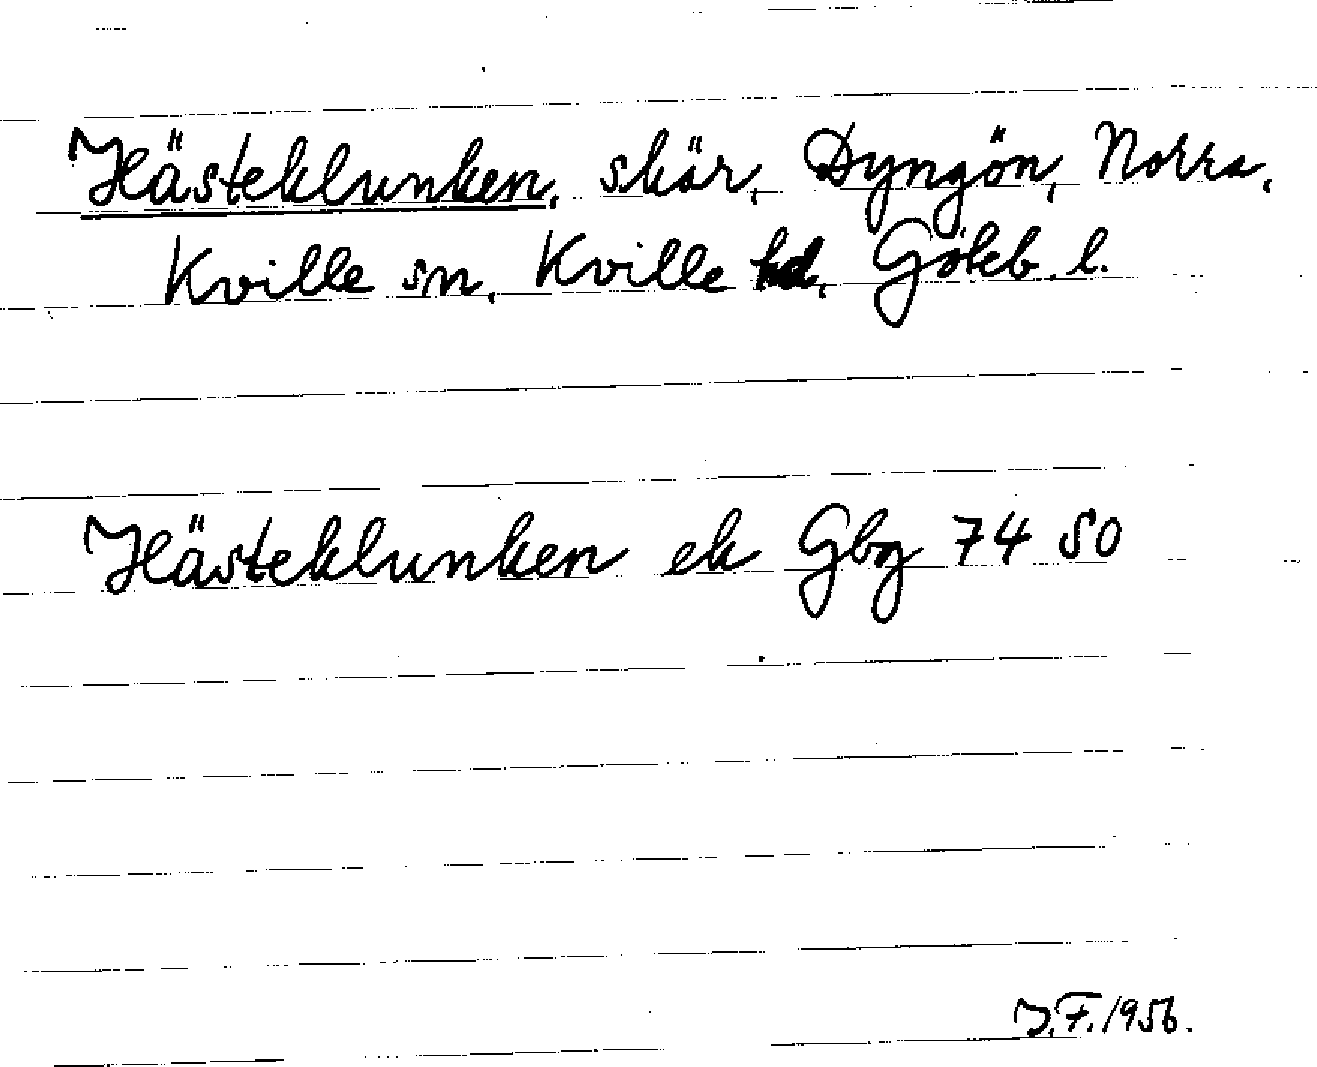 Hästeklunken, skär, Dyngön, Norra,
Kville sn, Kville hd, Göteb. l.
Hästeklunken ek Gbg 74 SO
J.F. 1956.